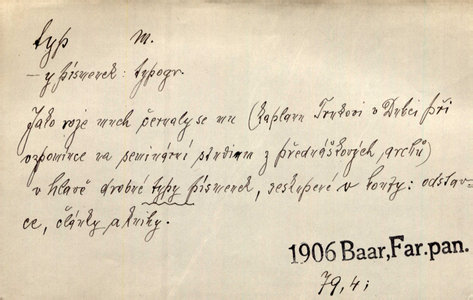 typ m.
– y písmenek: typogr.
Jako roje much černaly se mu (kaplanu Trnkovi v Dubci při
vzpomínce na seminární studium z přednáškových archů)
v hlavě drobné typy písmenek, seskupené v honty: odstav-
ce, články a knihy.
1906 Baar, Far. pan.
79, 4;